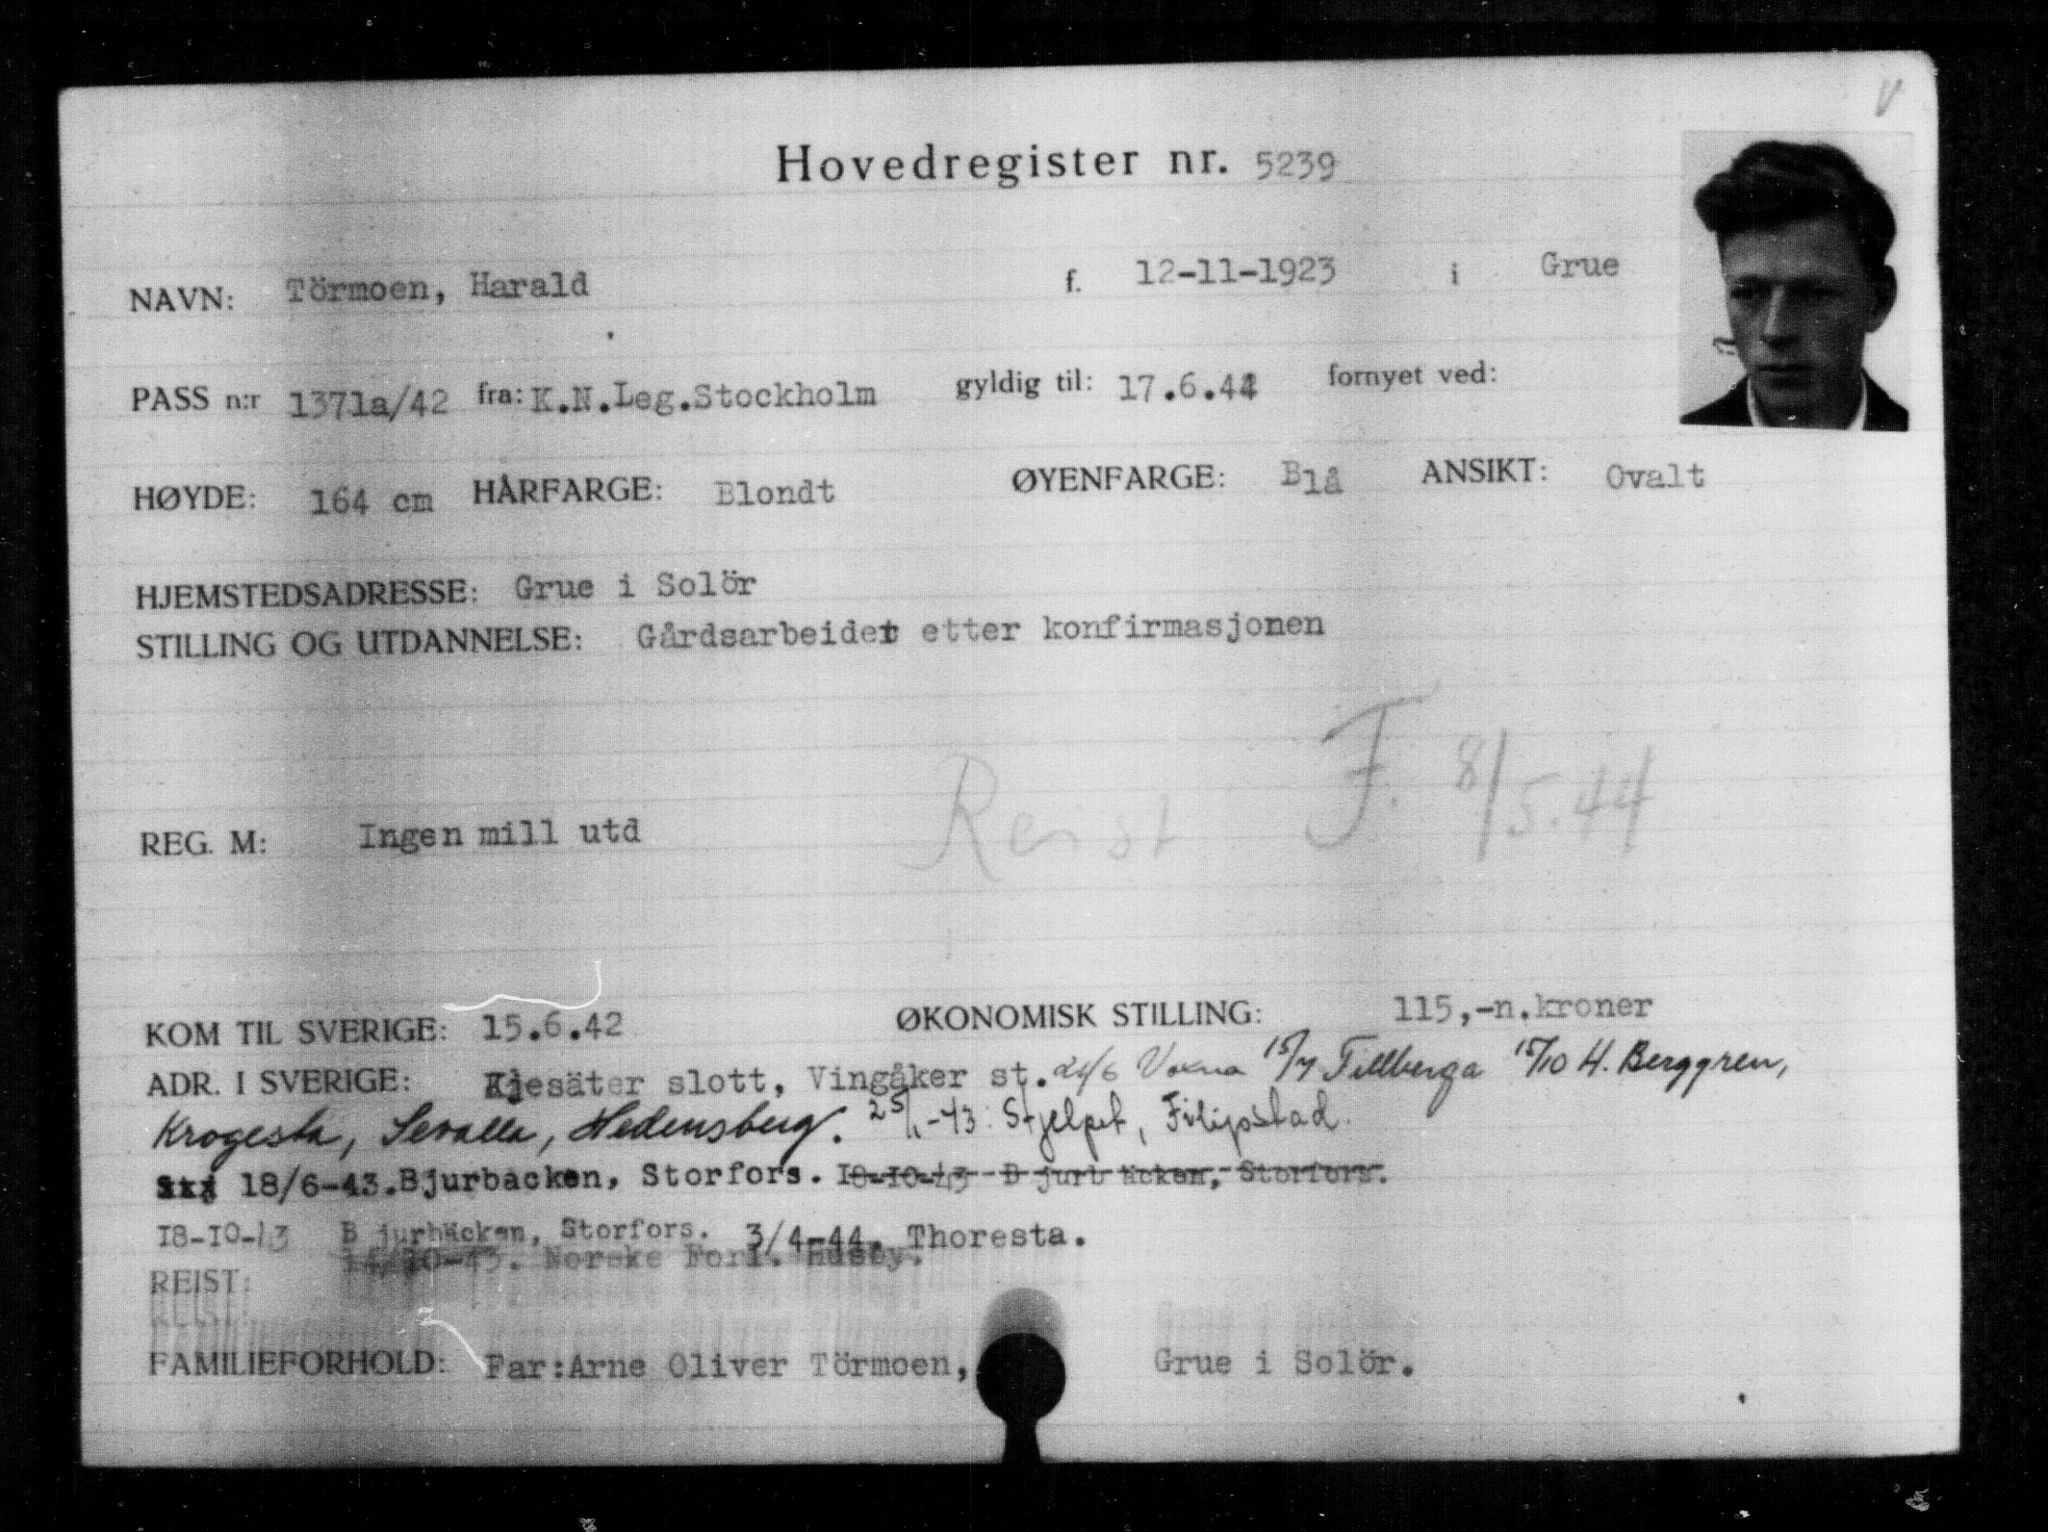 V
Hovedregister nr. 5239
NAVN: Törmoen, Harald f. 12-11-1923 i Grue
PASS n:r 1371a/42 fra: K.N.Leg.Stockholm gyldig til: 17.6.44 fornyet ved:
HØYDE: 164 cm HÅRFARGE: Blondt ØYENFARGE: Blå ANSIKT: Ovalt
HJEMSTEDSADRESSE: Grue i Solör
STILLING OG UTDANNELSE: Gårdsarbeider etter konfirmasjonen
Reist F. 8/5.44
REG. M: Ingen mill utd
KOM TIL SVERIGE: 15.6.42 ØKONOMISK STILLING: 115,-n.kroner
ADR. I SVERIGE: Kjesäter slott, Vingåker st. 24/6 Voxna 15/7 Tillberga 15/10 H. Berggren,
Krogesta, Sevalla, Hedensberg. 25/1-43: Stjelpet, Filipstad.
18/6-43. Bjurbacken, Storfors. 18-10-43 Bjurbäcken, Storfors.
18-10-43 Bjurbäcken, Storfors. 3/4-44. Thoresta.
14/10-43. Norske Forl. Husby.
REIST:
FAMILIEFORHOLD: Far:Arne Oliver Törmoen, Grue i Solör.